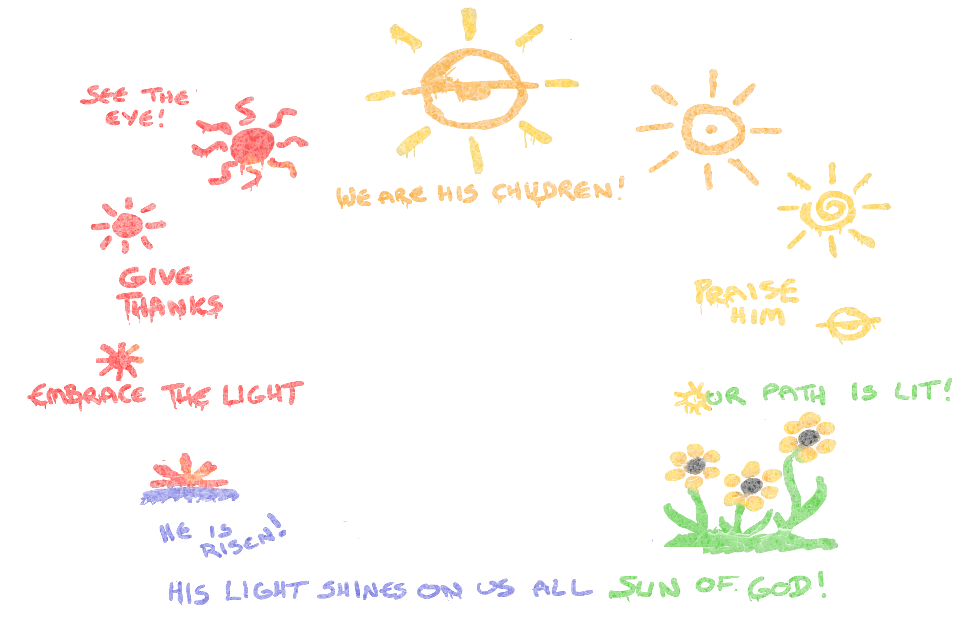 SEE THE
EYE!
WE ARE HIS CHILDREN!
GIVE
THANKS
PRAISE
HIM
EMBRACE THE LIGHT
OUR PATH IS LIT!
HE IS
RISEN!
HIS LIGHT SHINES ON US ALL SUN OF GOD!